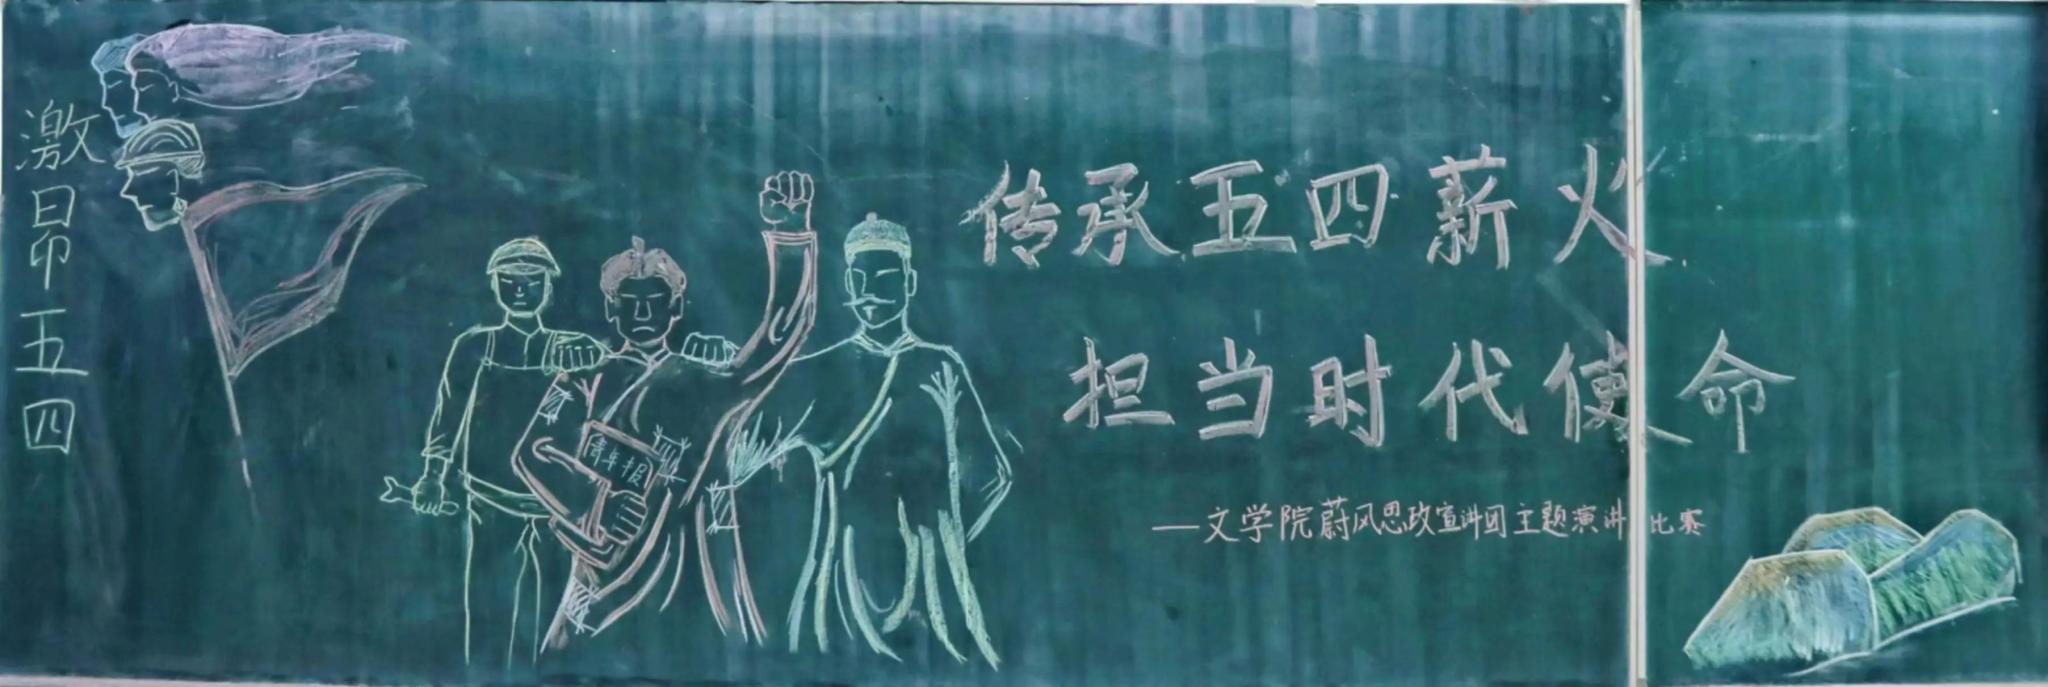 激昂五四
传承五四薪火
担当时代使命
—文学院蔚风思政宣讲团主题演讲比赛
青年报